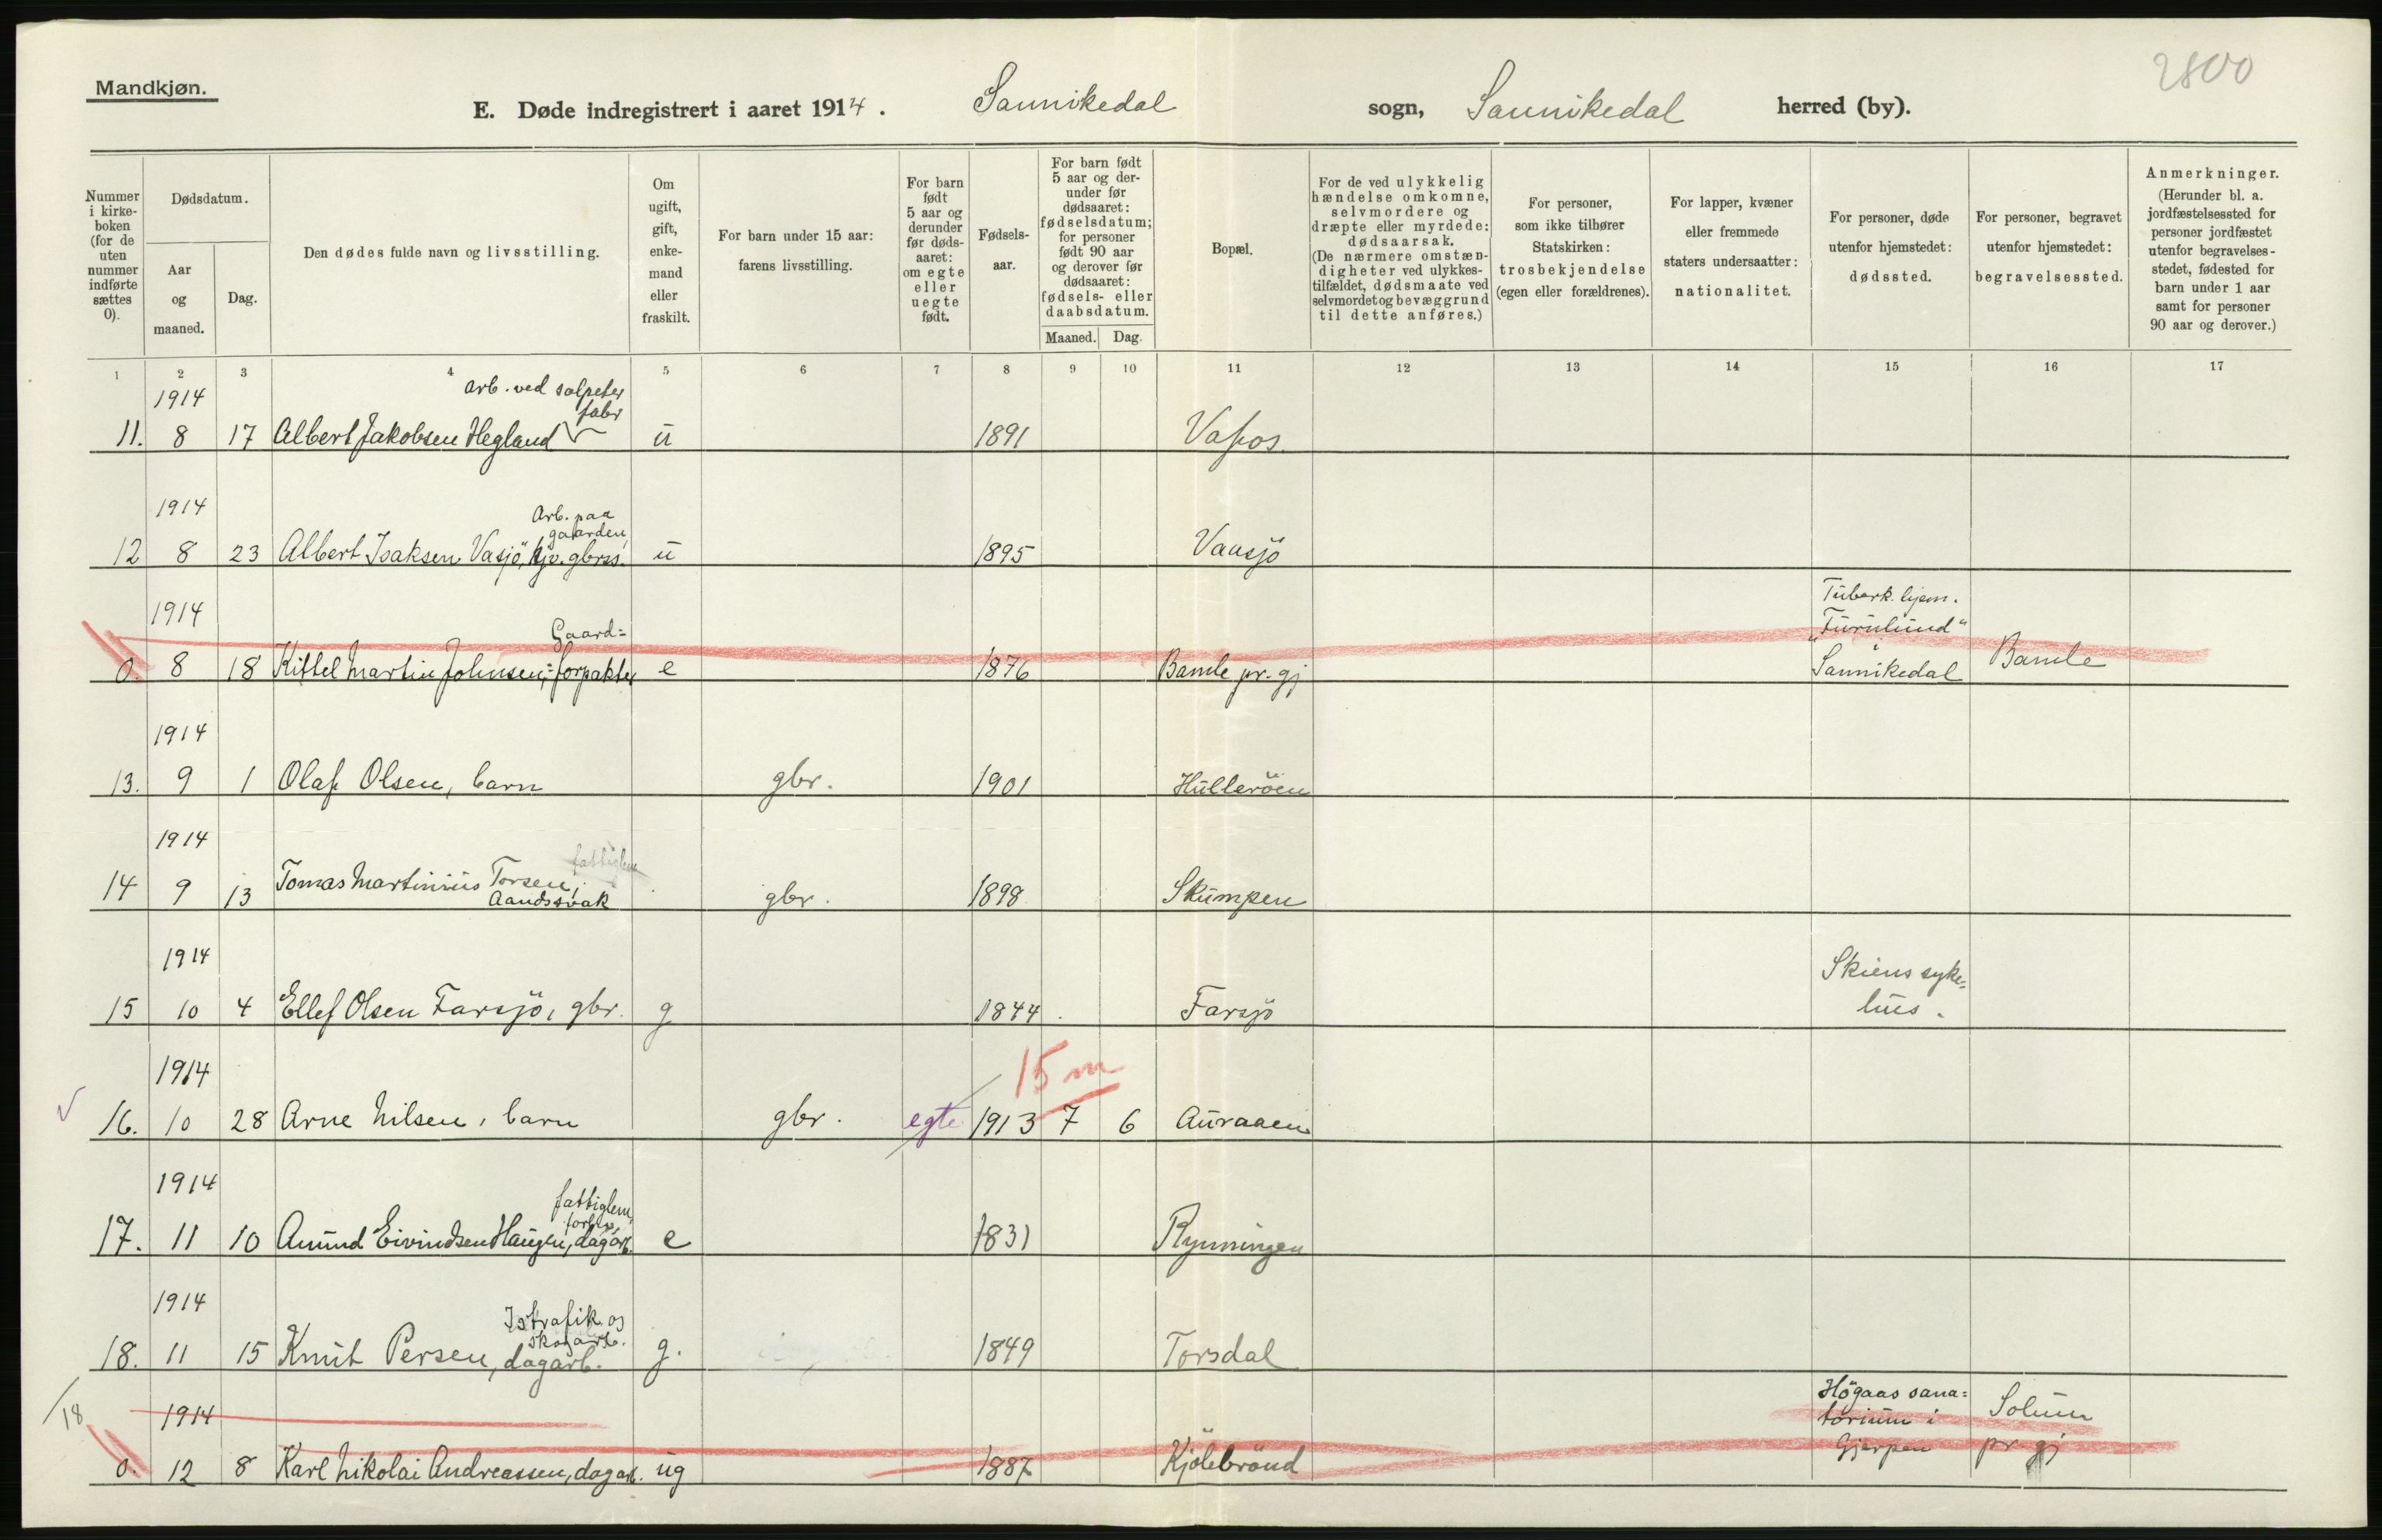 2800
Mandkjøn.
E. Døde indregistrert i aaret 1914. Sannikedal sogn, Sannikedal herred (by).
Nummer i kirke-boken (for de uten nummer indførte sættes 0).
Dødsdatum.
Aar og maaned.
Dag.
Den dødes fulde navn og livsstilling.
Om ugift, gift, enke-mand eller fraskilt.
For barn under 15 aar: farens livsstilling.
For barn født 5 aar og derunder før døds-aaret: om egte eller uegte født.
Fødsels-aar.
For barn født 5 aar og der-under før dødsaaret: fødselsdatum; for personer født 90 aar og derover før dødsaaret: fødsels- eller daabsdatum.
Maaned. Dag.
Bopæl.
For de ved ulykkelig hændelse omkomne, selvmordere og dræpte eller myrdede: dødsaarsak. (De nærmere omstæn-digheter ved ulykkes-tilfældet, dødsmaate ved selvmordet og bevæggrund til dette anføres.)
For personer, som ikke tilhører Statskirken: trosbekjendelse (egen eller forældrenes).
For lapper, kvæner eller fremmede staters undersaatter: nationalitet.
For personer, døde utenfor hjemstedet: dødssted.
For personer, begravet utenfor hjemstedet: begravelsessted.
Anmerkninger. (Herunder bl. a. jordfæstelsessted for personer jordfæstet utenfor begravelses-stedet, fødested for barn under 1 aar samt for personer 90 aar og derover.)
1 2 3 4 5 6 7 8 9 10 11 12 13 14 15 16 17
1914 arb. ved salpeter
fabr
11. 8 17 Albert Jakobsen Hegland u 1891 Vafos
1914 Arb. paa
gaarden,
12 8 23 Albert Isaksen Vasjö, gbrss. u 1895 Vaasjö
1914 Gaard= Tuberk. hjem.
"Furulund"
i
0. 8 18 Kittel Martin Johnsen, =forpakter e 1876 Bamle pr. gj Sannikedal Bamle
1914
13. 9 1 Olaf Olsen, barn gbr. 1901 Hulleröen
1914 fattiglem
14 9 13 Tomas Martinius Torsen, gbr. 1898 Skumpen
Aandssvak
1914 Skiens syke=
15 10 4 Ellef Olsen Farsjö, gbr. g 1844 Farsjö hus.
1914 15 m
16. 10 28 Arne Nilsen, barn gbr. egte 1913 7 6 Auraaen
1914 fattiglem,
forhv.
17. 11 10 Amund Eivindsen Haugen, dagarb. e 1831 Rynningen
1914 Istrafik og
skogarb.
18. 11 15 Knut Persen, dagarb. g. 1849 Torsdal
18 1914 Högaas sana=
torium i Solum
0. 12 8 Karl Nikolai Andreassen, dagarb. ug 1887 Kjölebrönd Gjerpen pr gj